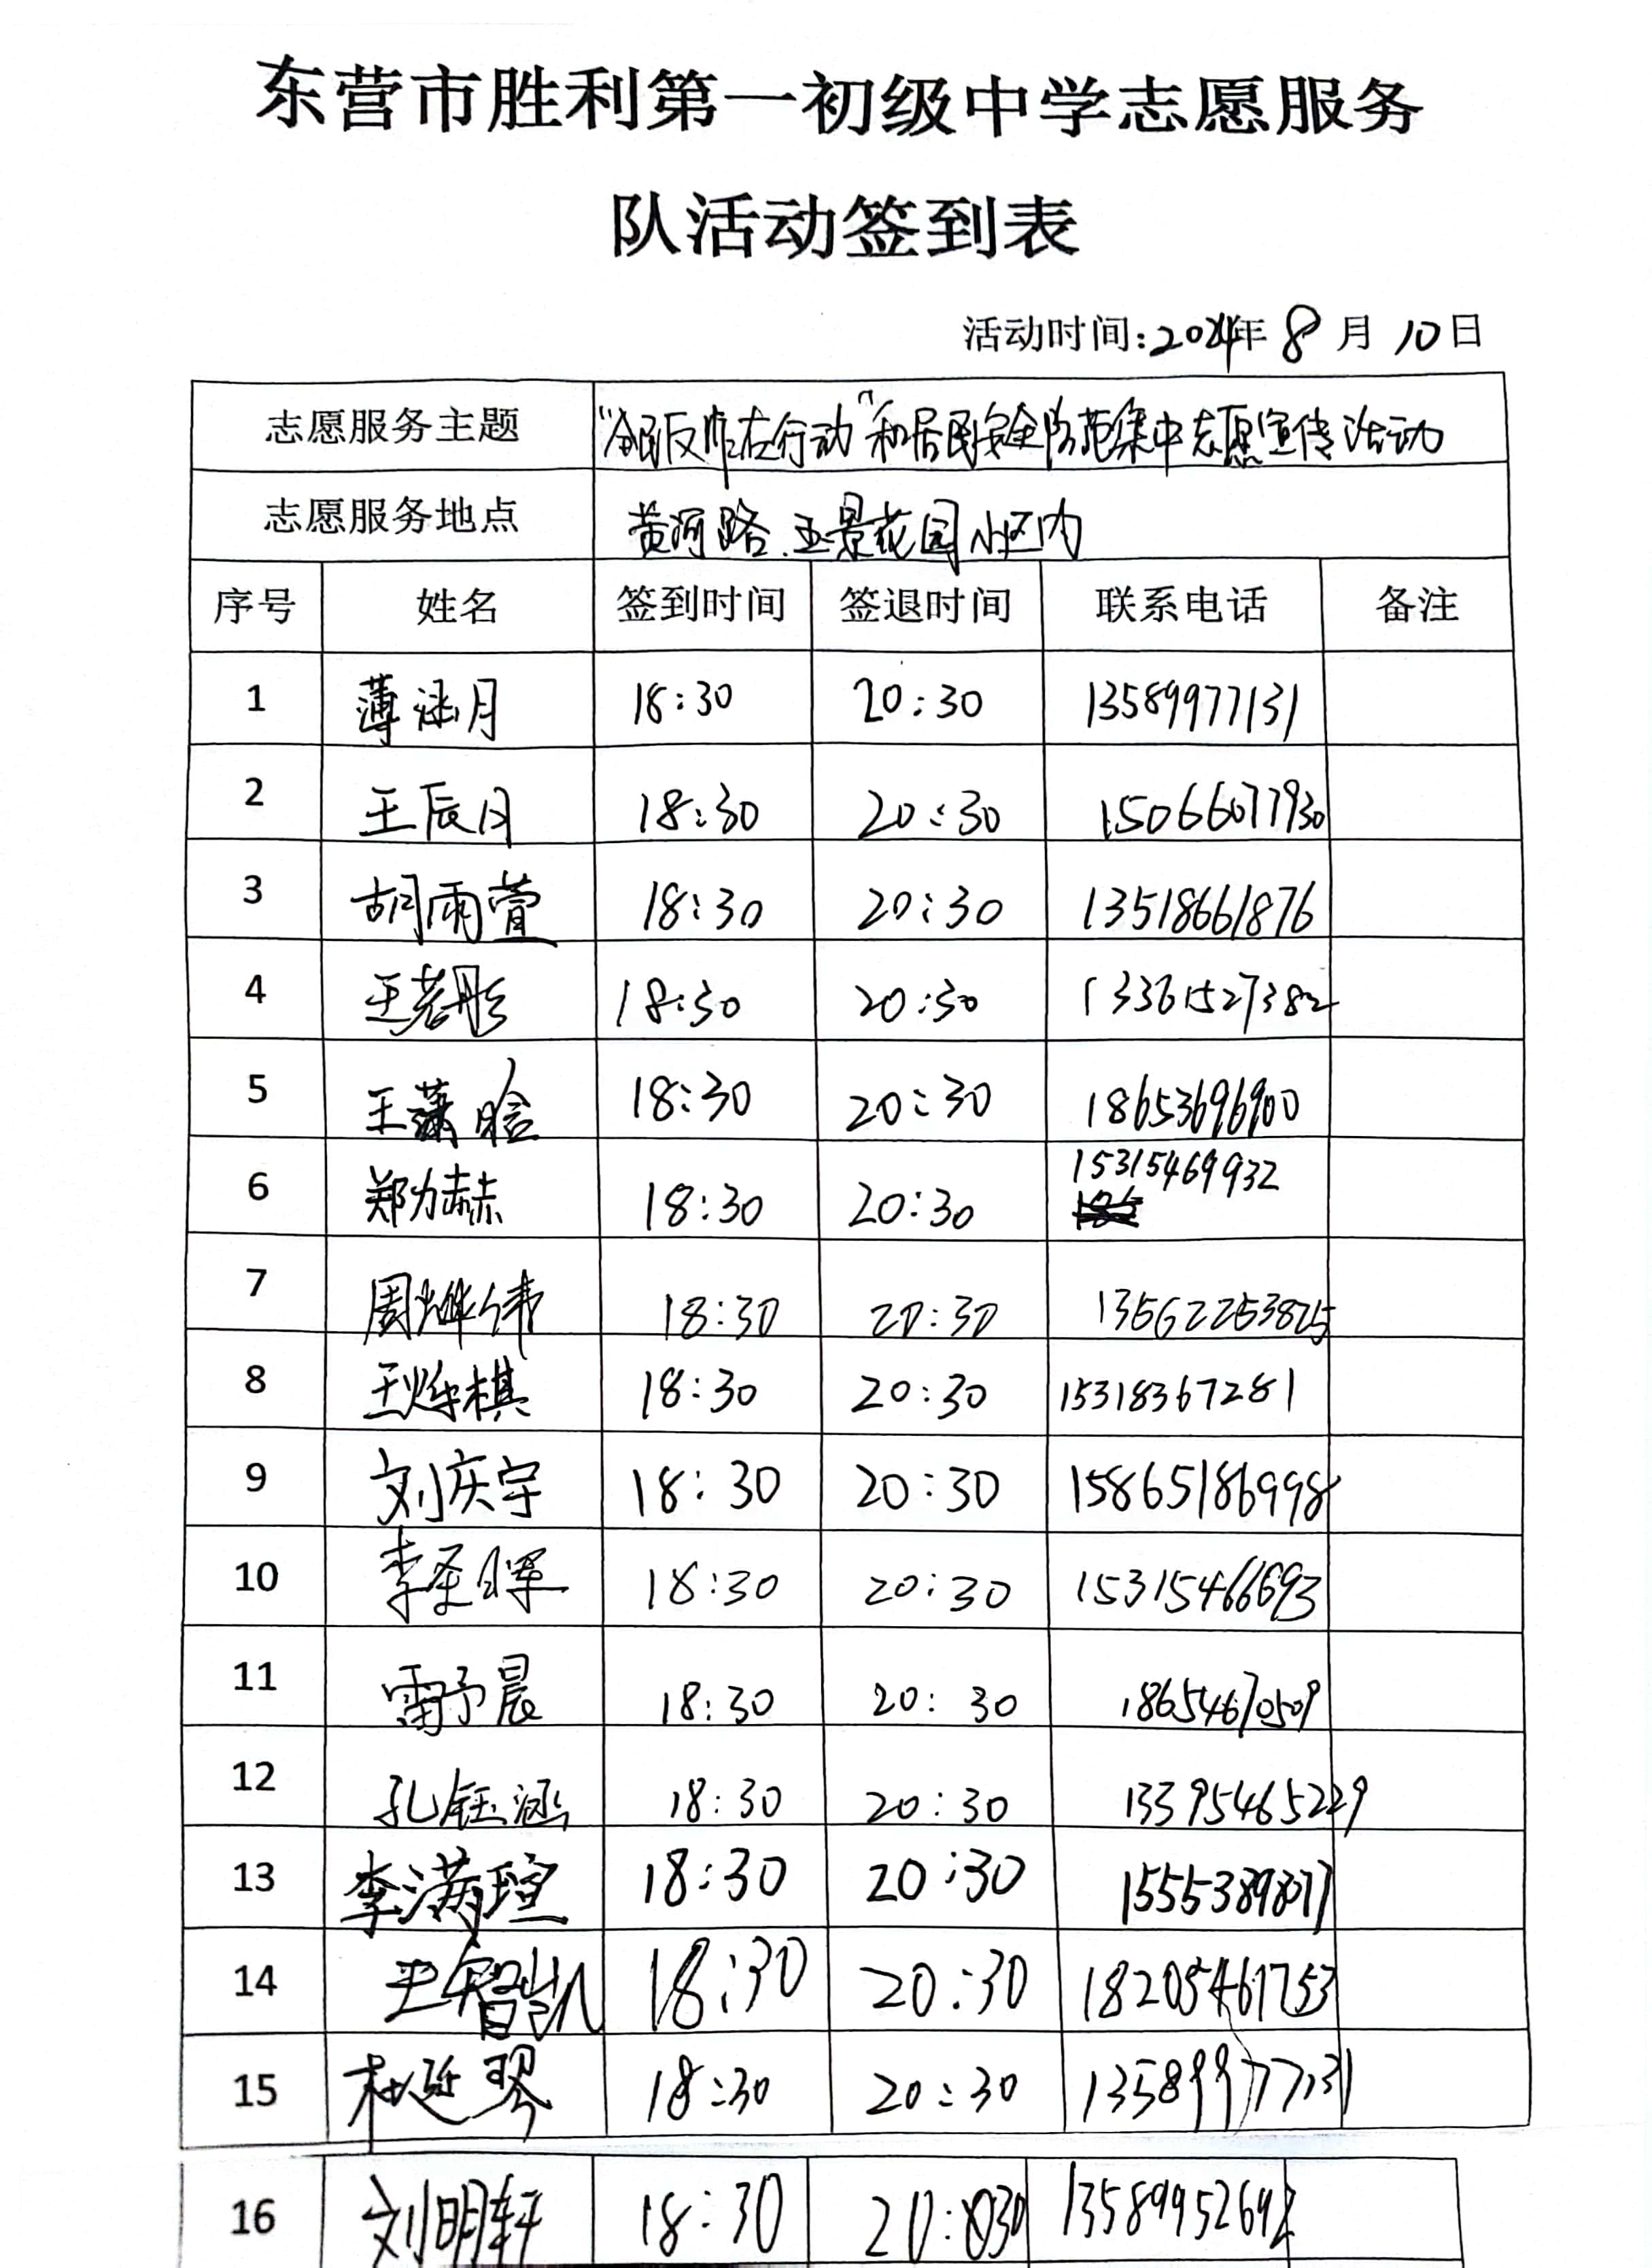 东营市胜利第一初级中学志愿服务
队活动签到表
活动时间:2024年 8 月 10日
志愿服务主题 “全民反诈在行动”和居民安全防范集中志愿宣传活动
志愿服务地点 黄河路.五景花园小区内
序号 姓名 签到时间 签退时间 联系电话 备注
1 薄涵月 18:30 20:30 13589977131
2 王辰月 18:30 20:30 15066077930
3 胡雨萱 18:30 20:30 13518661876
4 王若彤 18:30 20:30 13361527382
5 王潇晗 18:30 20:30 18653696900
6 郑力赫 18:30 20:30 15315469932
7 周烨伟 18:30 20:30 13562253825
8 王烨棋 18:30 20:30 15318367281
9 刘庆宇 18:30 20:30 15865186998
10 李圣晖 18:30 20:30 15315466693
11 雷予晨 18:30 20:30 18654670509
12 孔钰涵 18:30 20:30 13395465229
13 李满瑄 18:30 20:30 15553898077
14 王智凯 18:30 20:30 18205461753
15 杜延琴 18:30 20:30 13589977131
16 刘明轩 18:30 20:30 13589952692